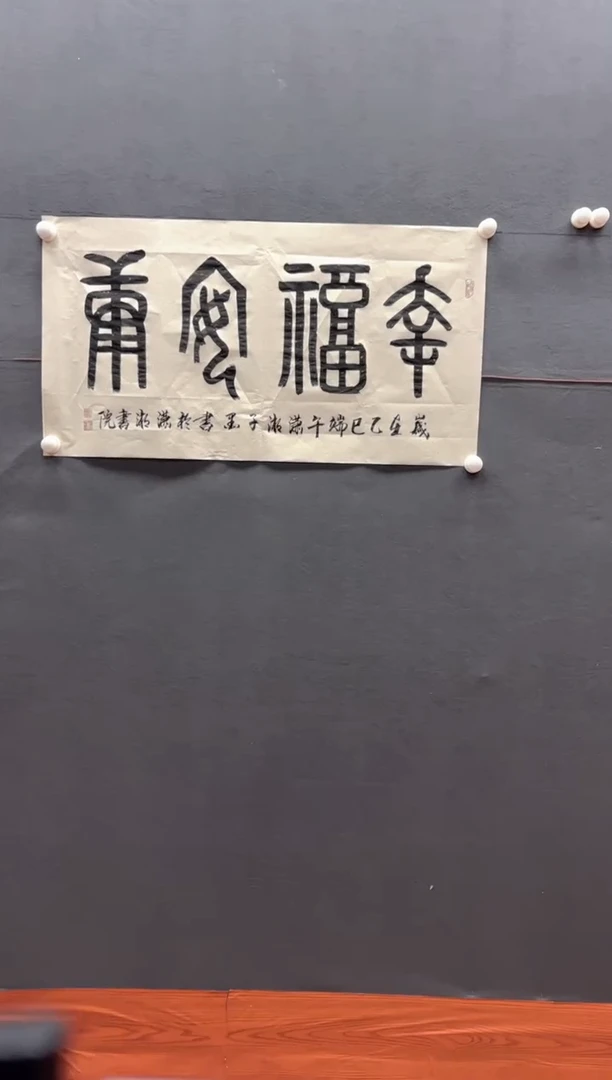 幸福安康
歲在乙巳端午瀟湘子墨書於瀟湘書院